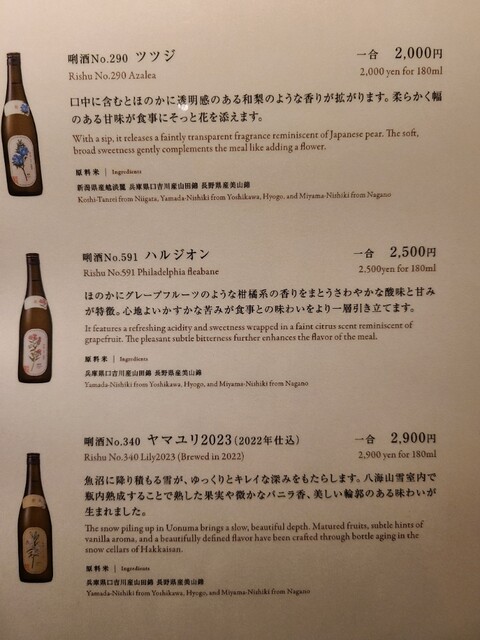 唎酒No.290 ツツジ 一合 2,000円
Rishu No.290 Azalea 2,000 yen for 180ml
口中に含むとほのかに透明感のある和梨のような香りが拡がります。柔らかく幅
のある甘味が食事にそっと花を添えます。
With a sip, it releases a faintly transparent fragrance reminiscent of Japanese pear. The soft,
broad sweetness gently complements the meal like adding a flower.
原料米 | Ingredients
新潟県産越淡麗 兵庫県口吉川産山田錦 長野県産美山錦
Koshi-Tanrei from Niigata, Yamada-Nishiki from Yoshikawa, Hyogo, and Miyama-Nishiki from Nagano
唎酒No.591 ハルジオン 一合 2,500円
Rishu No.591 Philadelphia fleabane 2.500yen for 180ml
ほのかにグレープフルーツのような柑橘系の香りをまとうさわやかな酸味と甘み
が特徴。心地よいかすかな苦みが食事との味わいをより一層引き立てます。
It features a refreshing acidity and sweetness wrapped in a faint citrus scent reminiscent of
grapefruit. The pleasant subtle bitterness further enhances the flavor of the meal.
原料米 | Ingredients
兵庫県口吉川産山田錦 長野県産美山錦
Yamada-Nishiki from Yoshikawa, Hyogo, and Miyama-Nishiki from Nagano
唎酒No.340 ヤマユリ2023（2022年仕込） 一合 2,900円
Rishu No.340 Lily2023 (Brewed in 2022) 2,900 yen for 180ml
魚沼に降り積もる雪が、ゆっくりとキレイな深みをもたらします。八海山雪室内で
瓶内熟成することで熟した果実や微かなバニラ香、美しい輪郭のある味わいが
生まれました。
The snow piling up in Uonuma brings a slow, beautiful depth. Matured fruits, subtle hints of
vanilla aroma, and a beautifully defined flavor have been crafted through bottle aging in the
snow cellars of Hakkaisan.
原料米 | Ingredients
兵庫県口吉川産山田錦 長野県産美山錦
Yamada-Nishiki from Yoshikawa, Hyogo, and Miyama-Nishiki from Nagano